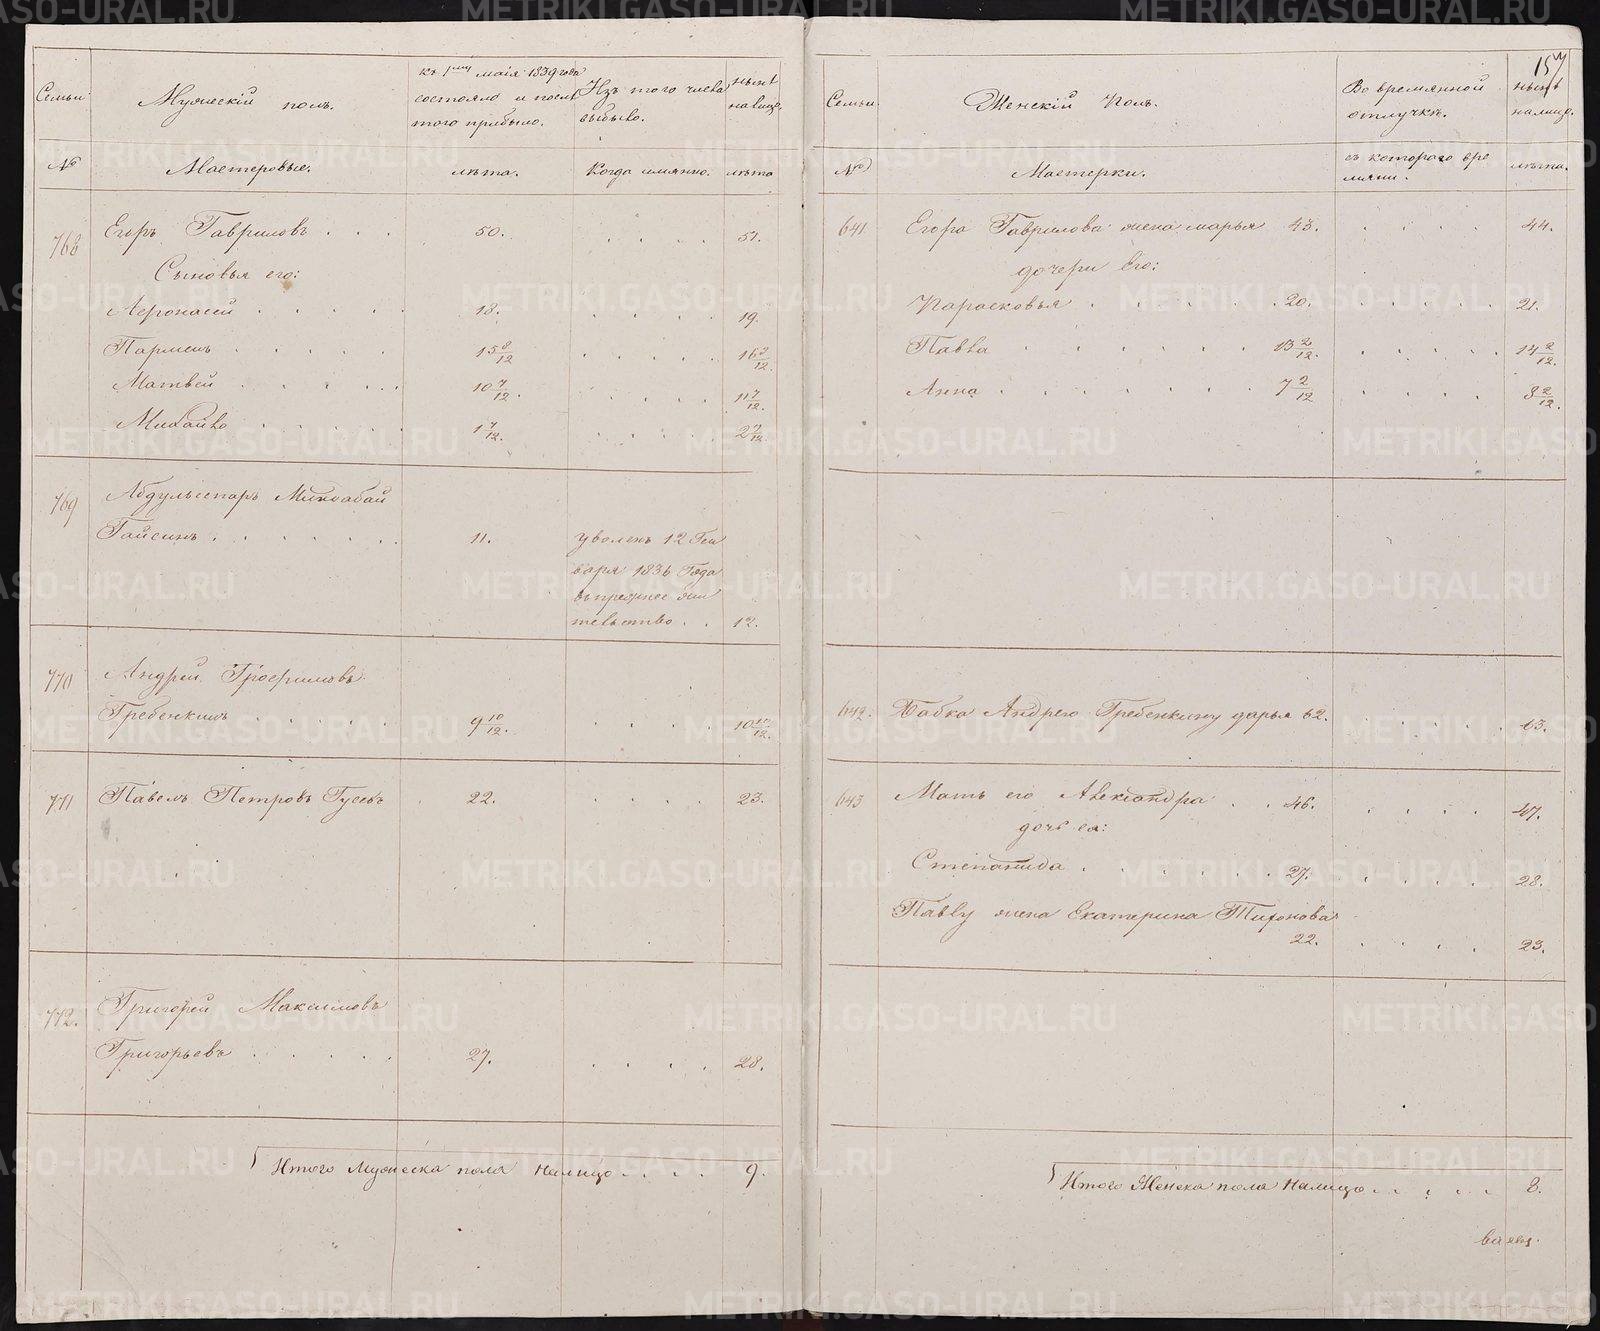 Семьи
Мужескій полъ.
къ 1му маія 1839 года
состояло и послѣ
того прибыло.
Изъ того числа
выбыло.
нынѣ
на лицо.
№
Мастеровые.
лѣта.
Когда имянно.
лѣта
768
Егоръ Гавриловъ . . . 50. . . . . 51.
Сыновья его:
Афонасей . . . . . 18. . . . . 19.
Парменъ . . . . . 15 8/12 . . . . . 16 8/12.
Матвей . . . . . 10 7/12. . . . . 11 7/12.
Михайло . . . . . 1 7/12. . . . . 2 7/12.
769
Абдульсспаръ
Гайсинъ . . . . . . 11. уволенъ 12 Ген
варя 1836 Года
въ прежнее жи
тельство . . 12.
770
Андрей Трофимовъ
Гребенкинъ . . . . . 9 10/12. . . . . 10 10/12.
771 Павелъ Петровъ Гусевъ 22. . . . . 23.
772. Григорей Максимовъ
Григорьевъ . . . . . 27. . . . . 28.
Итого Мужеска пола налицо . . . . 9.
157
Семьи
Женскій Полъ.
Во времянной
отлучкѣ.
нынѣ
на лицо.
№
Мастерки.
съ котораго вре
мяни.
лѣта.
641 Егора Гаврилова жена марья 43. . . . . 44.
дочери Его:
Парасковья . . . . . 20. . . . . 21.
Павла . . . . . . 13 2/12. . . . . 14 2/12.
Анна . . . . . . . 7 2/12 . . . . 8 2/12.
642. Бабка Андрею Гребенкину дарья 62. . . . . 63.
643 Мать его Александра . . 46. . . . . 47.
дочь ея:
Степанида . . . . . . 27. . . . . 28.
Павлу жена Екатерина Тихонова
22. . . . . 23.
Итого Женска пола Налицо . . . . . 8.
METRIKI.GASO-URAL.RU